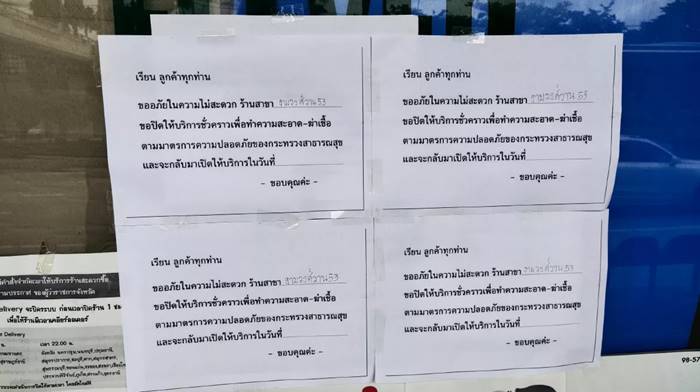 เรียน ลูกค้าทุกท่าน
ขออภัยในความไม่สะดวก ร้านสาขา งามวงศ์วาน 53
ขอปิดให้บริการชั่วคราวเพื่อทำความสะอาด-ฆ่าเชื้อ
ตามมาตรการความปลอดภัยของกระทรวงสาธารณสุข
และจะกลับมาเปิดให้บริการในวันที่
- ขอบคุณค่ะ -
เรียน ลูกค้าทุกท่าน
ขออภัยในความไม่สะดวก ร้านสาขา งามวงศ์วาน 53
ขอปิดให้บริการชั่วคราวเพื่อทำความสะอาด-ฆ่าเชื้อ
ตามมาตรการความปลอดภัยของกระทรวงสาธารณสุข
และจะกลับมาเปิดให้บริการในวันที่
- ขอบคุณค่ะ -
เรียน ลูกค้าทุกท่าน
ขออภัยในความไม่สะดวก ร้านสาขา งามวงศ์วาน 53
ขอปิดให้บริการชั่วคราวเพื่อทำความสะอาด-ฆ่าเชื้อ
ตามมาตรการความปลอดภัยของกระทรวงสาธารณสุข
และจะกลับมาเปิดให้บริการในวันที่
- ขอบคุณค่ะ -
เรียน ลูกค้าทุกท่าน
ขออภัยในความไม่สะดวก ร้านสาขา งามวงศ์วาน 53
ขอปิดให้บริการชั่วคราวเพื่อทำความสะอาด-ฆ่าเชื้อ
ตามมาตรการความปลอดภัยของกระทรวงสาธารณสุข
และจะกลับมาเปิดให้บริการในวันที่
- ขอบคุณค่ะ -
จะปิดระบบ ก่อนเวลาปิดร้าน 1
Delivery
เวลา 22.00 น.
98-57